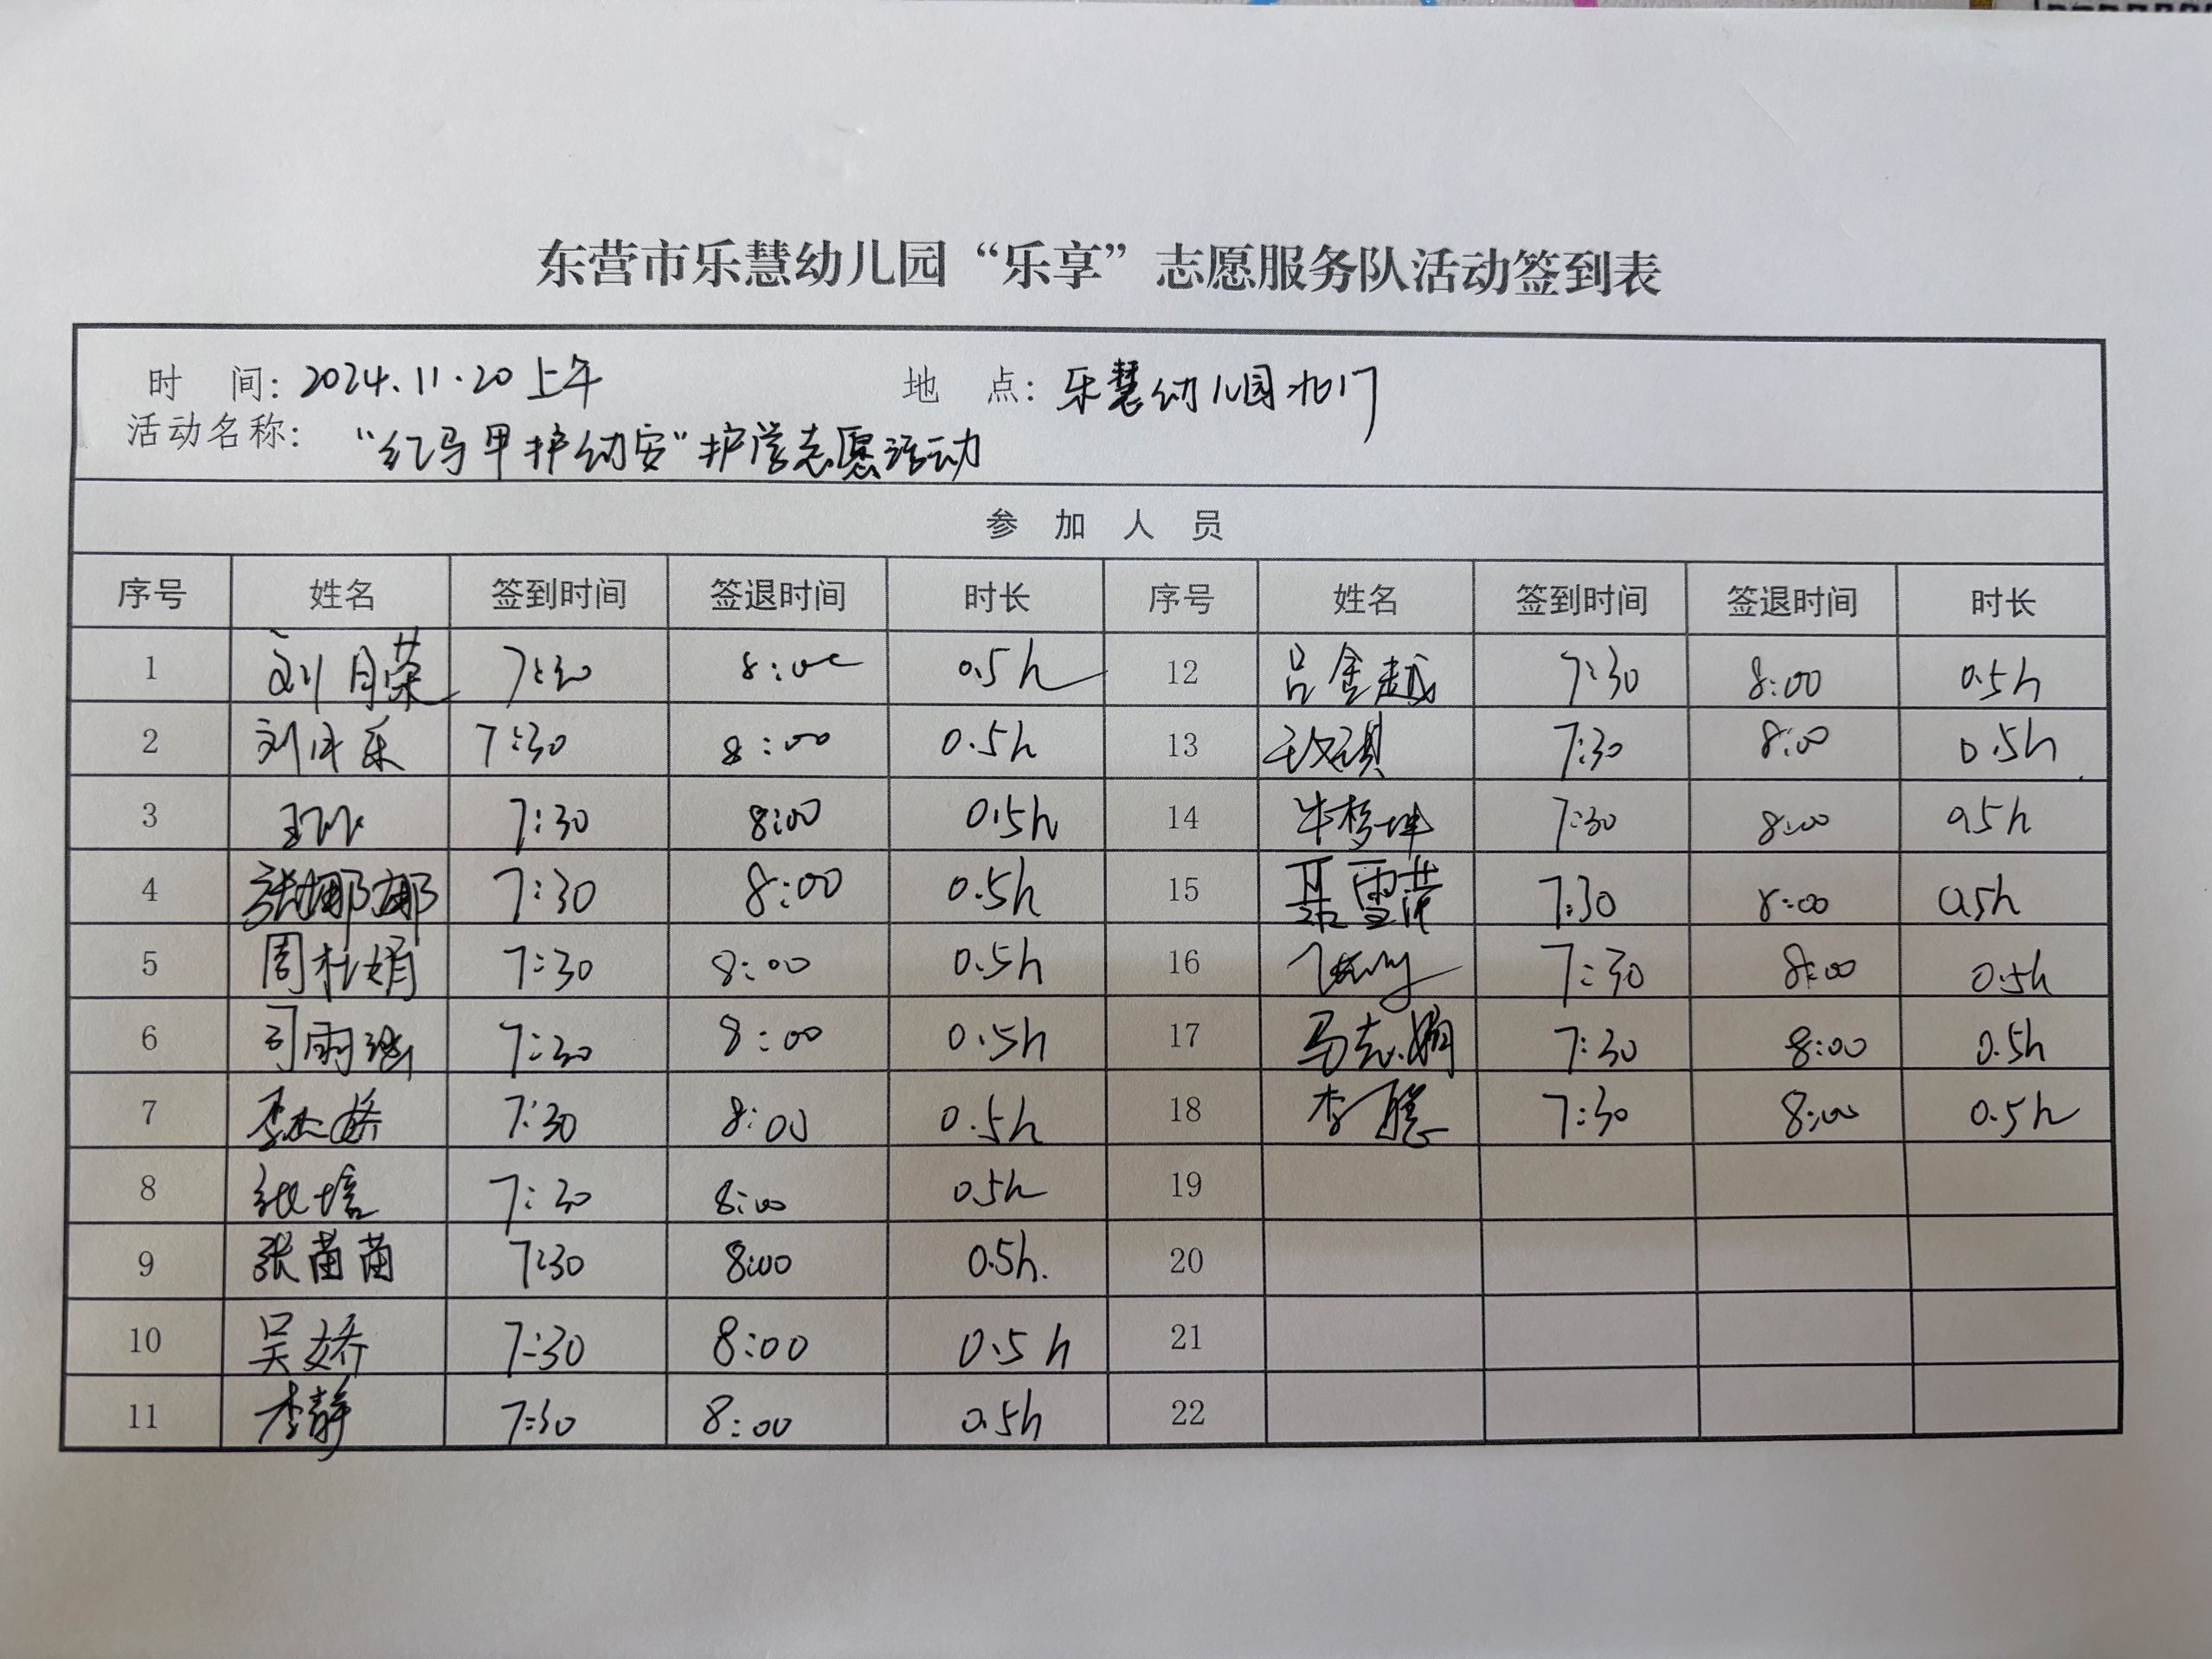 东营市乐慧幼儿园“乐享”志愿服务队活动签到表
时 间: 2024.11.20上午 地 点: 乐慧幼儿园北门
活动名称: “红马甲护幼安”护学志愿活动
参 加 人 员
序号 姓名 签到时间 签退时间 时长 序号 姓名 签到时间 签退时间 时长
1 刘月荣 7:30 8:00 0.5h 12 吕金越 7:30 8:00 0.5h
2 刘 乐 7:30 8:00 0.5h 13 7:30 8:00 0.5h
3 7:30 8:00 0.5h 14 牛梦坤 7:30 8:00 0.5h
4 张娜娜 7:30 8:00 0.5h 15 聂雪萍 7:30 8:00 0.5h
5 周杜娟 7:30 8:00 0.5h 16 7:30 8:00 0.5h
6 司雨 7:30 8:00 0.5h 17 马志娟 7:30 8:00 0.5h
7 李 娇 7:30 8:00 0.5h 18 李聪 7:30 8:00 0.5h
8 张培 7:30 8:00 0.5h 19
9 张苗苗 7:30 8:00 0.5h. 20
10 吴娇 7:30 8:00 0.5h 21
11 李静 7:30 8:00 0.5h 22